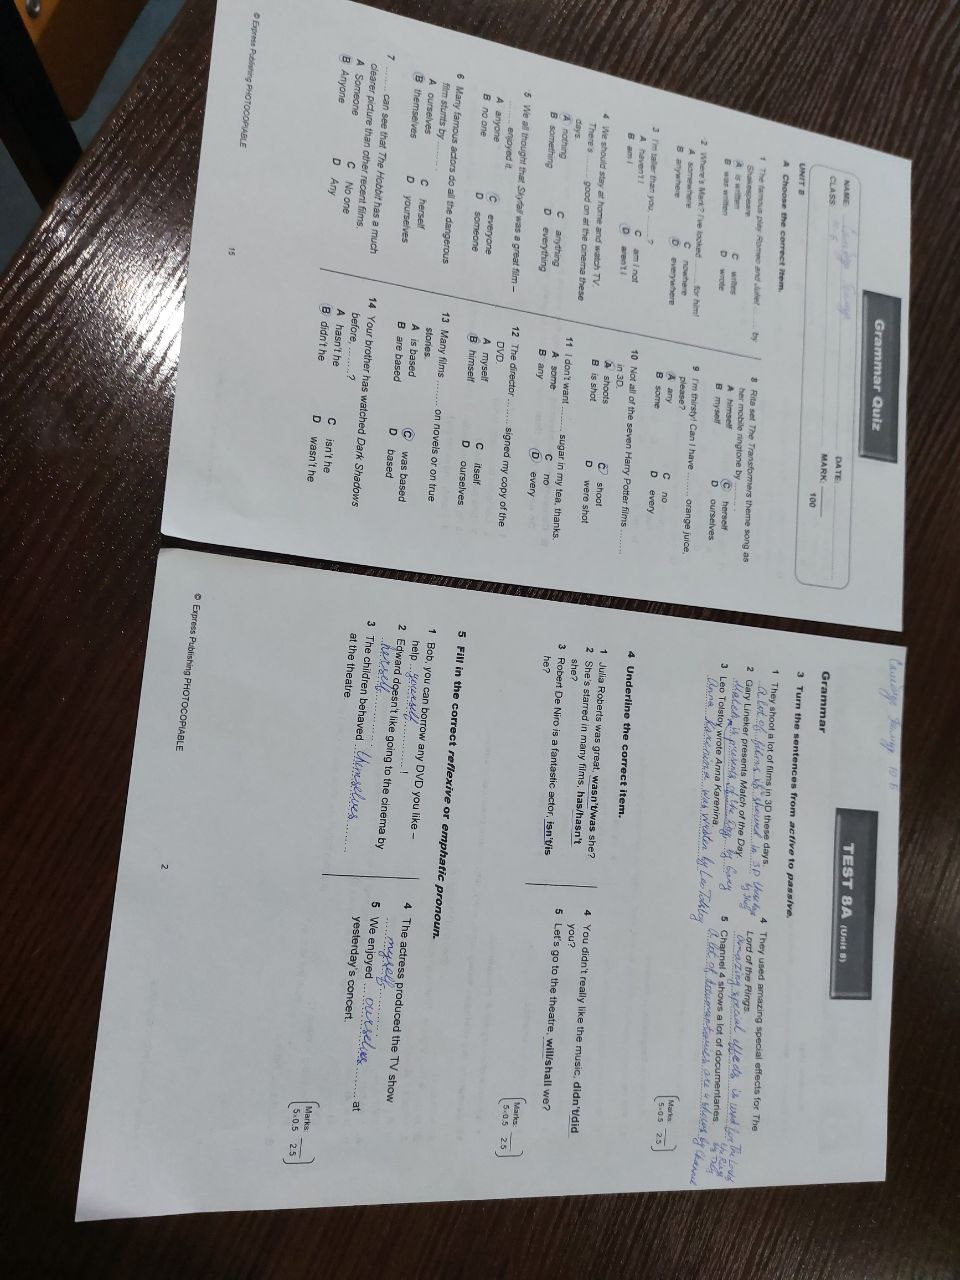 NAME:
CLASS:
Grammar Quiz
DATE:
MARK:
100
UNIT 8
A Choose the correct item.
1 The famous play Romeo and Juliet ......... by
Shakespeare.
A is written C writes
B was written D wrote
2 Where's Mark? I've looked ......... for him!
A somewhere C nowhere
B anywhere D everywhere
3 I'm taller than you, ......... ?
A haven't I C am I not
B am I D aren't I
4 We should stay at home and watch TV.
There's ......... good on at the cinema these
days.
A nothing C anything
B something D everything
5 We all thought that Skyfall was a great film –
......... enjoyed it.
A anyone C everyone
B no one D someone
6 Many famous actors do all the dangerous
film stunts by ......... .
A ourselves C herself
B themselves D yourselves
7 ......... can see that The Hobbit has a much
clearer picture than other recent films.
A Someone C No one
B Anyone D Any
8 Rita set The Transformers theme song as
her mobile ringtone by ......... .
A himself C herself
B myself D ourselves
9 I'm thirsty! Can I have ......... orange juice,
please?
A any C no
B some D every
10 Not all of the seven Harry Potter films .........
in 3D.
A shoots C shoot
B is shot D were shot
11 I don't want ......... sugar in my tea, thanks.
A some C no
B any D every
12 The director ......... signed my copy of the
DVD.
A myself C itself
B himself D ourselves
13 Many films ......... on novels or on true
stories.
A is based C was based
B are based D based
14 Your brother has watched Dark Shadows
before, ......... ?
A hasn't he C isn't he
B didn't he D wasn't he
© Express Publishing PHOTOCOPIABLE
15
10 B
TEST 8A (Unit 8)
Grammar
3 Turn the sentences from active to passive.
1 They shoot a lot of films in 3D these days.
2 Gary Lineker presents Match of the Day.
3 Leo Tolstoy wrote Anna Karenina.
4 They used amazing special effects for The
Lord of the Rings.
5 Channel 4 shows a lot of documentaries.
Marks:
5x0.5 2.5
4 Underline the correct item.
1 Julia Roberts was great, wasn't/was she?
2 She's starred in many films, has/hasn't
she?
3 Robert De Niro is a fantastic actor, isn't/is
he?
4 You didn't really like the music, didn't/did
you?
5 Let's go to the theatre, will/shall we?
Marks:
5x0.5 2.5
5 Fill in the correct reflexive or emphatic pronoun.
1 Bob, you can borrow any DVD you like –
help yourself !
2 Edward doesn't like going to the cinema by
herself
3 The children behaved themselves
at the theatre
4 The actress produced the TV show
myself
5 We enjoyed ourselves at
yesterday's concert.
Marks:
5x0.5 2.5
© Express Publishing PHOTOCOPIABLE
2